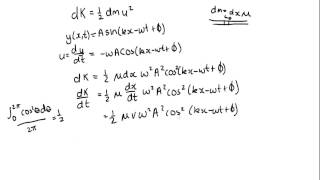 dK = ½ dm u²
dm = dx μ
y(x,t) = A sin(kx-wt+ϕ)
u = dy/dt = -wA Cos(kx-wt+ϕ)
dK = ½ μdx w²A²cos²(kx-wt+ϕ)
dK/dt = ½ μ dx/dt w²A²cos²(kx-wt+ϕ)
∫₀^2π cos²θdθ/2π = ½
= ½ μ v w²A² cos²(kx-wt+ϕ)